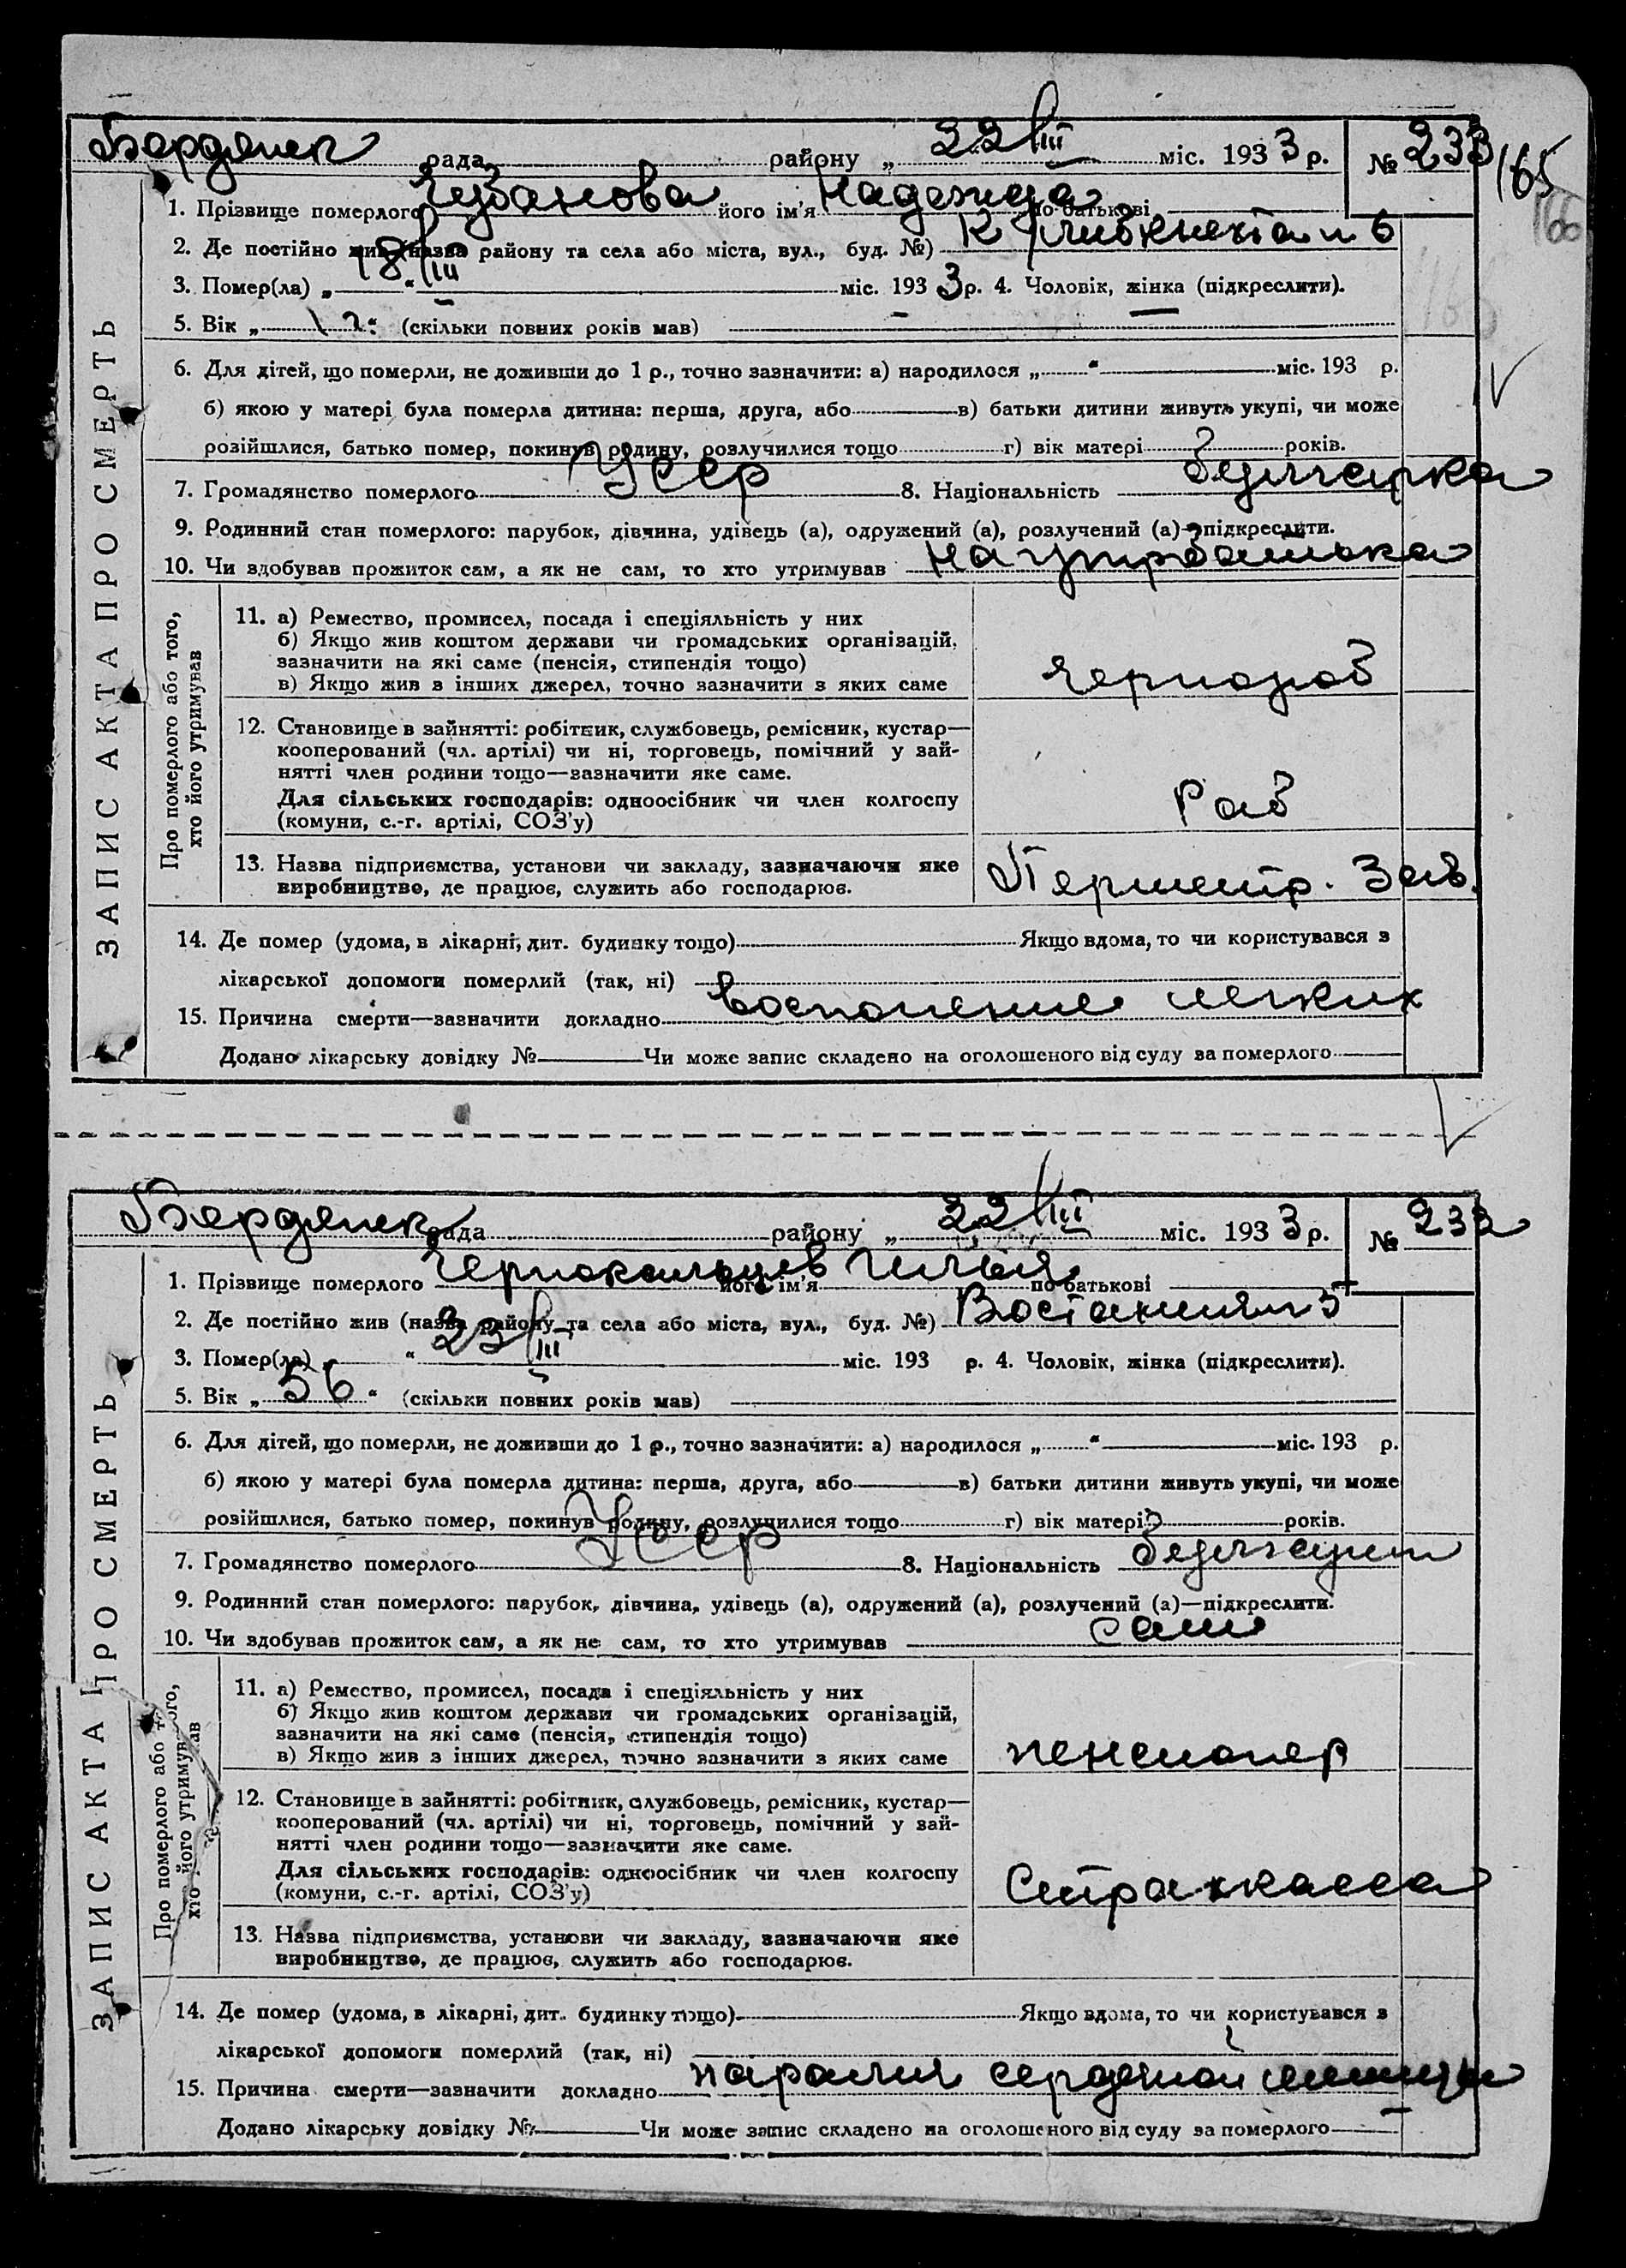 Бердянск рада району „ 22/III міс. 1933 р. № 233
165
166
1. Прізвище померлого його ім'я Надежда по батькові
2. Де постійно жив (назва району та села або міста, вул., буд. №) К Либкнехта 6
3. Помер(ла) „ 18/III “ міс. 1933 р. 4. Чоловік, жінка (підкреслити).
5. Вік „ “ (скільки повних років мав)
6. Для дітей, що померли, не доживши до 1 р., точно зазначити: а) народилося „ “ міс. 193 р.
б) якою у матері була померла дитина: перша, друга, або в) батьки дитини живуть укупі, чи може
розійшлися, батько помер, покинув родину, розлучилися тощо г) вік матері років.
7. Громадянство померлого Усср 8. Національність
9. Родинний стан померлого: парубок, дівчина, удівець (а), одружений (а), розлучений (а)—підкреслити.
10. Чи здобував прожиток сам, а як не сам, то хто утримував на утр батька
ЗАПИС АКТА ПРО СМЕРТЬ
Про померлого або того, хто його утримував
11. а) Ремество, промисел, посада і спеціяльність у них
б) Якщо жив коштом держави чи громадських організацій,
зазначити на які саме (пенсія, стипендія тощо)
в) Якщо жив з інших джерел, точно зазначити з яких саме
Чернораб
12. Становище в зайнятті: робітник, службовець, ремісник, кустар—
кооперований (чл. артілі) чи ні, торговець, помічний у зай-
нятті член родини тощо—зазначити яке саме.
Для сільських господарів: одноосібник чи член колгоспу
(комуни, с.-г. артілі, СОЗ'у)
Раб
13. Назва підприємства, установи чи закладу, зазначаючи яке
виробництво, де працює, служить або господарює.
Першетр. Зав.
14. Де помер (удома, в лікарні, дит. будинку тощо) Якщо вдома, то чи користувався з
лікарської допомоги померлий (так, ні)
15. Причина смерти—зазначити докладно воспаление легких
Додано лікарську довідку № Чи може запис складено на оголошеного від суду за померлого
Бердянск рада району „ 22/III міс. 1933 р. № 232
1. Прізвище померлого його ім'я Илья по батькові
2. Де постійно жив (назва району та села або міста, вул., буд. №) Востания 5
3. Помер(ла) „ “ 23/III міс. 193 р. 4. Чоловік, жінка (підкреслити).
5. Вік „ 56 “ (скільки повних років мав)
6. Для дітей, що померли, не доживши до 1 р., точно зазначити: а) народилося „ “ міс. 193 р.
б) якою у матері була померла дитина: перша, друга, або в) батьки дитини живуть укупі, чи може
розійшлися, батько помер, покинув родину, розлучилися тощо г) вік матері років.
7. Громадянство померлого Усср 8. Національність
9. Родинний стан померлого: парубок, дівчина, удівець (а), одружений (а), розлучений (а)—підкреслити.
10. Чи здобував прожиток сам, а як не сам, то хто утримував сам
ЗАПИС АКТА ПРО СМЕРТЬ
Про померлого або того, хто його утримував
11. а) Ремество, промисел, посада і спеціяльність у них
б) Якщо жив коштом держави чи громадських організацій,
зазначити на які саме (пенсія, стипендія тощо)
в) Якщо жив з інших джерел, точно зазначити з яких саме
пенсионер
12. Становище в зайнятті: робітник, службовець, ремісник, кустар—
кооперований (чл. артілі) чи ні, торговець, помічний у зай-
нятті член родини тощо—зазначити яке саме.
Для сільських господарів: одноосібник чи член колгоспу
(комуни, с.-г. артілі, СОЗ'у)
Страхкасса
13. Назва підприємства, установи чи закладу, зазначаючи яке
виробництво, де працює, служить або господарює.
14. Де помер (удома, в лікарні, дит. будинку тощо) Якщо вдома, то чи користувався з
лікарської допомоги померлий (так, ні)
15. Причина смерти—зазначити докладно паралич сердечной мышцы
Додано лікарську довідку № Чи може запис складено на оголошеного від суду за померлого